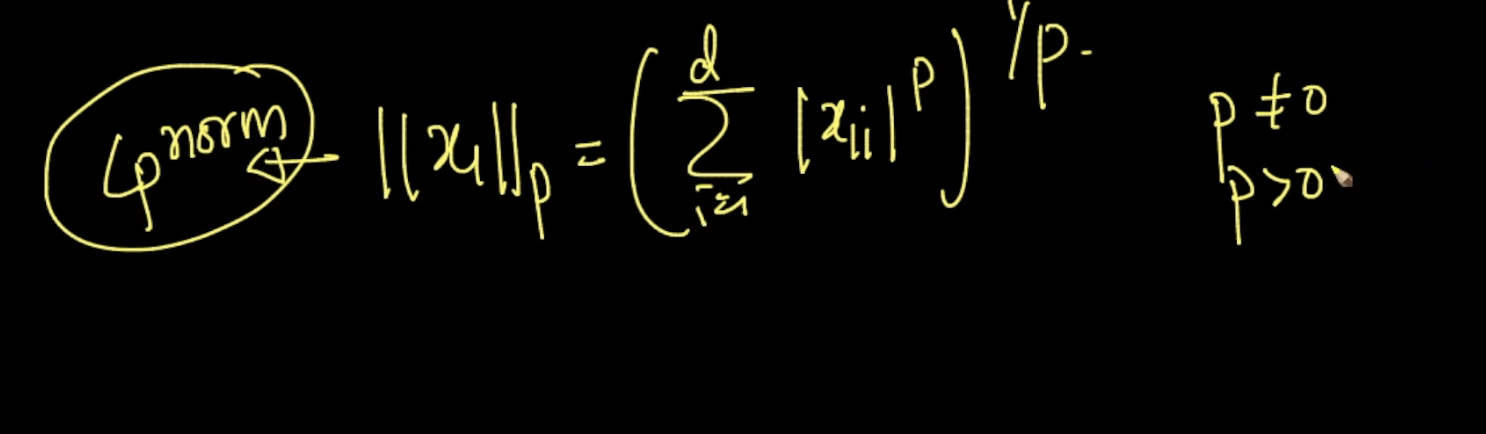 Lp norm ← ||x₁||p = (∑ᵈᵢ₌₁ |x₁ᵢ|ᵖ)^1/p. p ≠ 0
p > 0